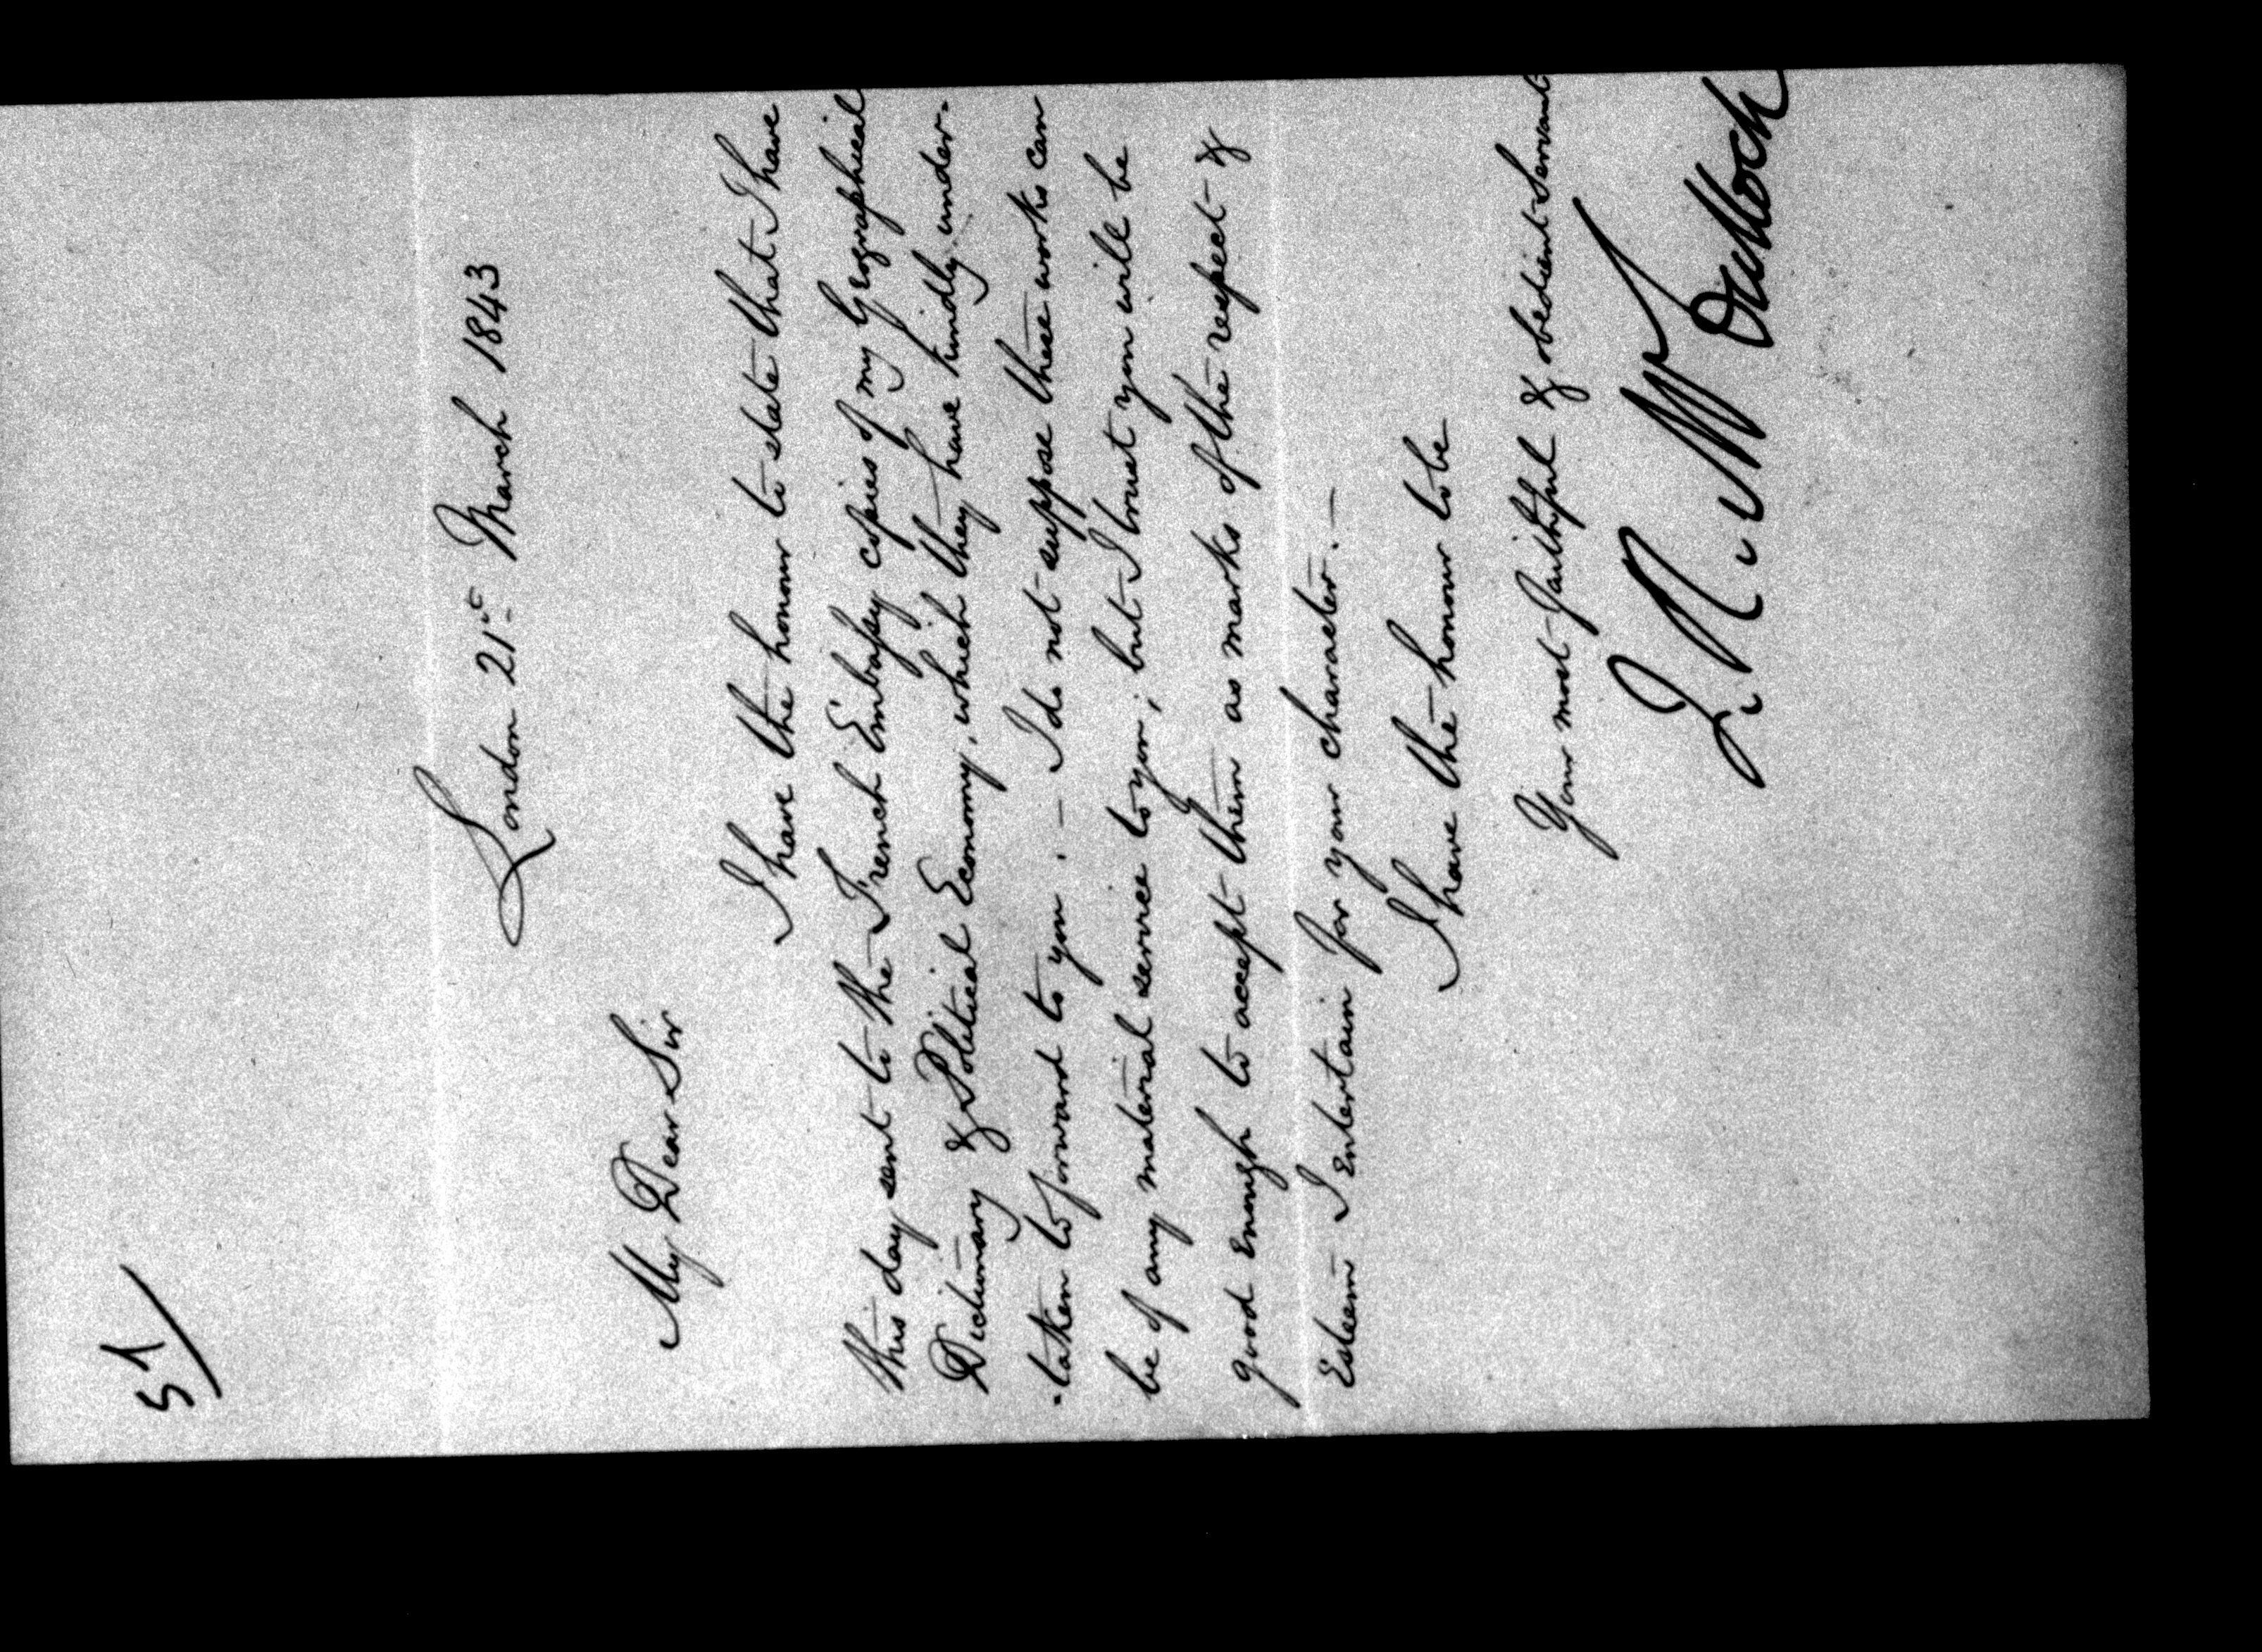 51/
London 21st March 1843
My Dear Sir
I have the honour to state that I have
this day sent to the French Embassy copies of my Geographical
Dictionary & Political Economy, which they have kindly under-
-taken to forward to you. – I do not suppose these works can
be of any material service to you; but I trust you will be
good enough to accept them as marks of the respect &
Esteem I entertain for your character. –
I have the honour to be
Your most faithful & obedient Servant
J. R. McCulloch